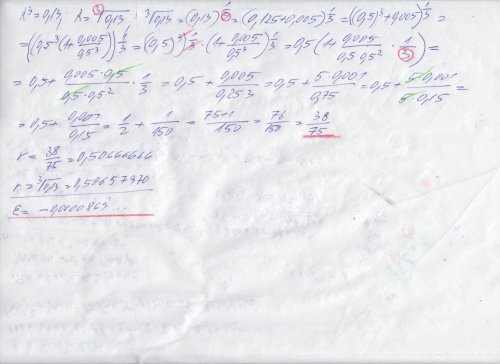 r³=0,13 r=³√0,13 ; ³√0,13=(0,13)^(1/3)=(0,125+0,005)^(1/3)=((0,5)³+0,005)^(1/3)=
=((0,5³(1+0,005/0,5³))^(1/3)=(0,5)^(3·1/3)·(1+0,005/0,5³)^(1/3)=0,5(1+0,005/(0,5·0,5²)·1/3)=
=0,5+(0,005·0,5)/(0,5·0,5²)·1/3=0,5+0,005/(0,25·3)=0,5+(5·0,001)/0,75=0,5+(5·0,001)/(5·0,15)=
=0,5+0,001/0,15=1/2+1/150=(75+1)/150=76/150=38/75
r=38/75=0,50666666
r=³√0,13=0,50657970
ε=-0,0000869...